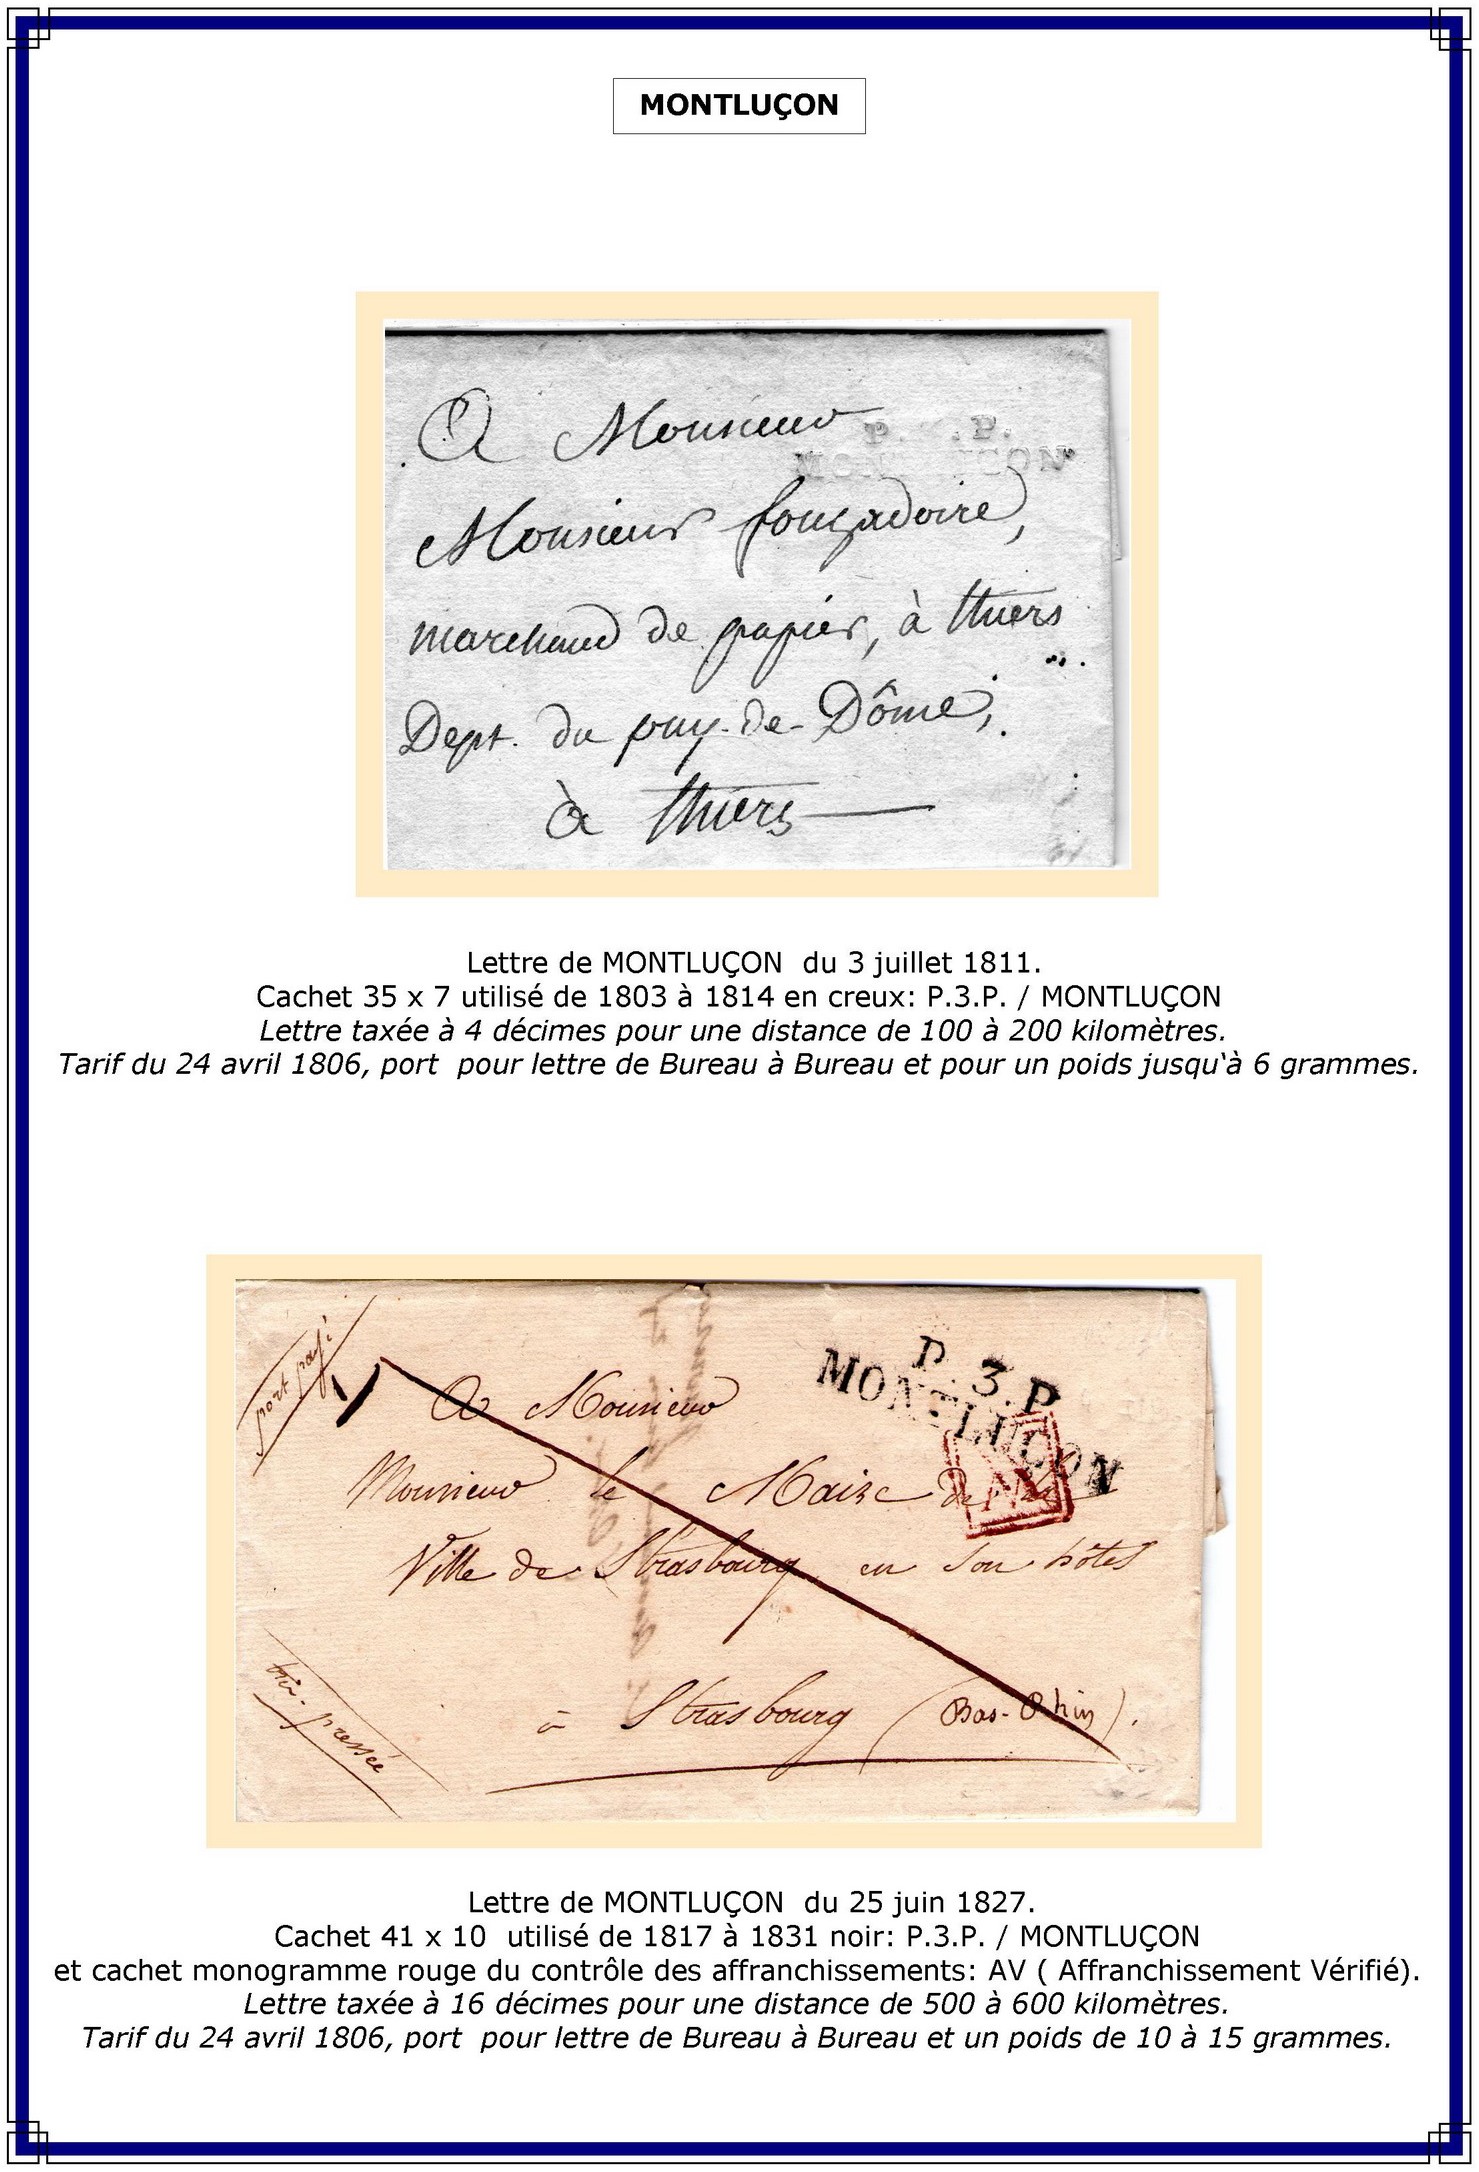 MONTLUÇON
P. . P.
A Monsieur
MON   ÇON
Monsieur fougadoire,
marchand de papier, à thiers
Dept. du puy-de-Dôme,
à thiers
Lettre de MONTLUÇON du 3 juillet 1811.
Cachet 35 x 7 utilisé de 1803 à 1814 en creux: P.3.P. / MONTLUÇON
Lettre taxée à 4 décimes pour une distance de 100 à 200 kilomètres.
Tarif du 24 avril 1806, port pour lettre de Bureau à Bureau et pour un poids jusqu'à 6 grammes.
port payé
P.3.P
MONTLUÇON
A Monsieur
Monsieur le Maire de la
AV
Ville de Strasbourg, en son hôtel
très-pressée
à Strasbourg (Bas-Rhin).
Lettre de MONTLUÇON du 25 juin 1827.
Cachet 41 x 10 utilisé de 1817 à 1831 noir: P.3.P. / MONTLUÇON
et cachet monogramme rouge du contrôle des affranchissements: AV ( Affranchissement Vérifié).
Lettre taxée à 16 décimes pour une distance de 500 à 600 kilomètres.
Tarif du 24 avril 1806, port pour lettre de Bureau à Bureau et un poids de 10 à 15 grammes.